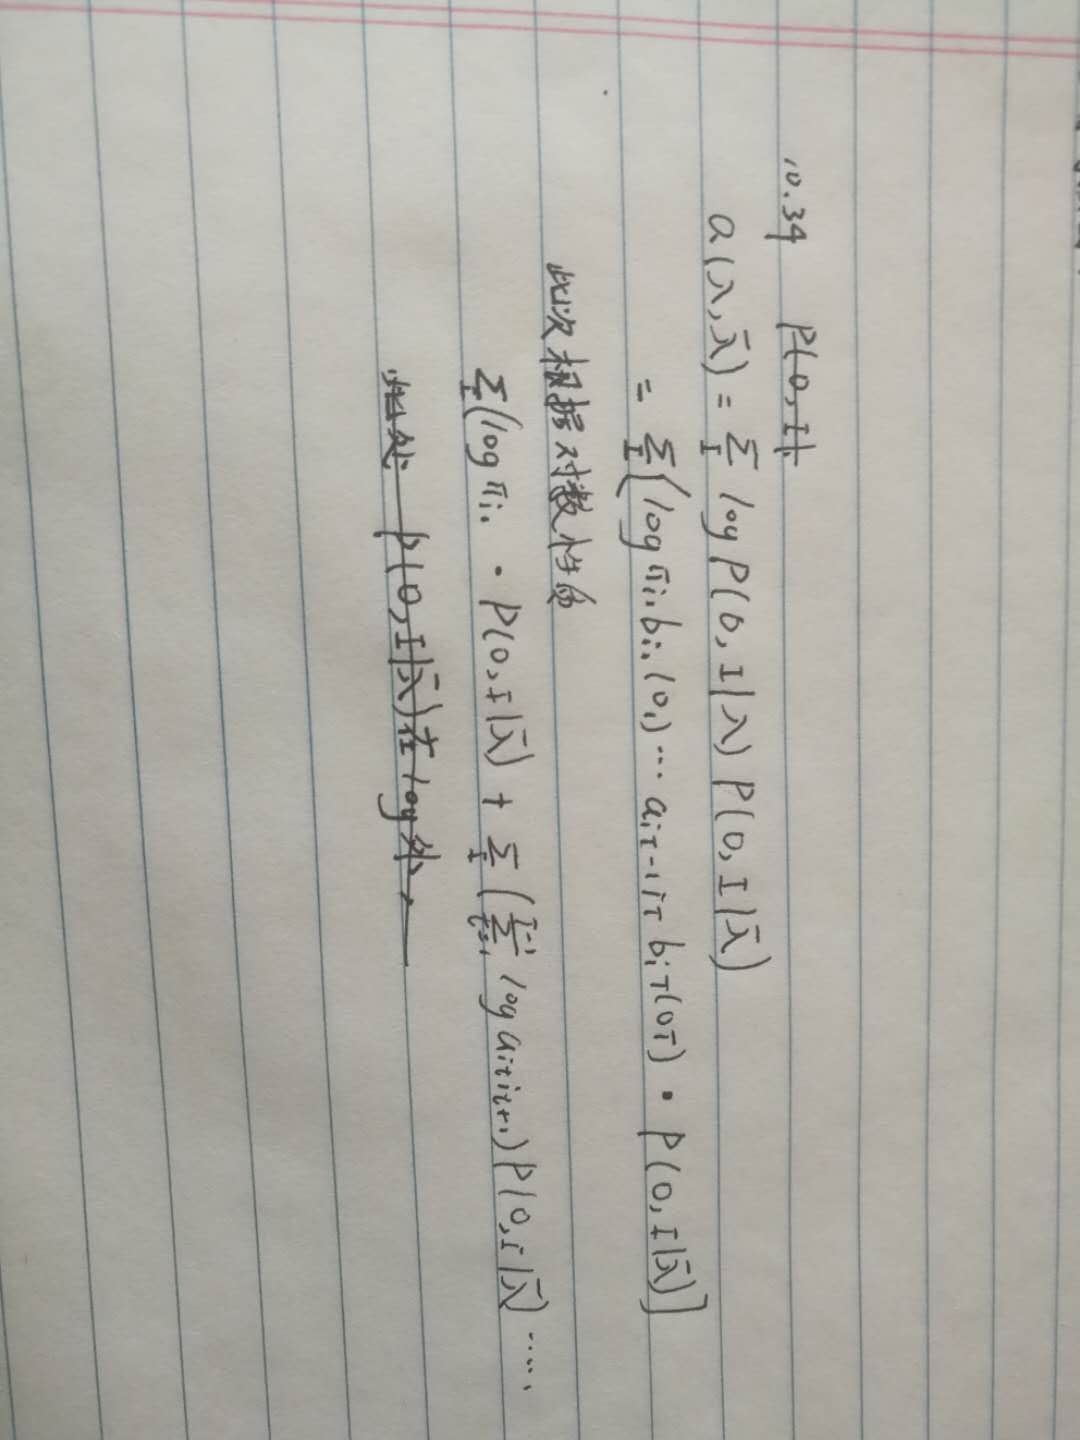 10.34 P(0,I|
Q(λ,λ̄) = Σ_I log P(0,I|λ) P(0,I|λ̄)
= Σ_I [log πi₁ bi₁(0₁)… aiT-1iT biT(0T) · P(0,I|λ̄)]
此次根据对数性质
Σ_I(log πi₁ · P(0,I|λ̄) + Σ_I (Σ_{t=1}^{I-1} log aitit+1) P(0,I|λ̄) ……
此处 P(0,I|λ̄)在log外,